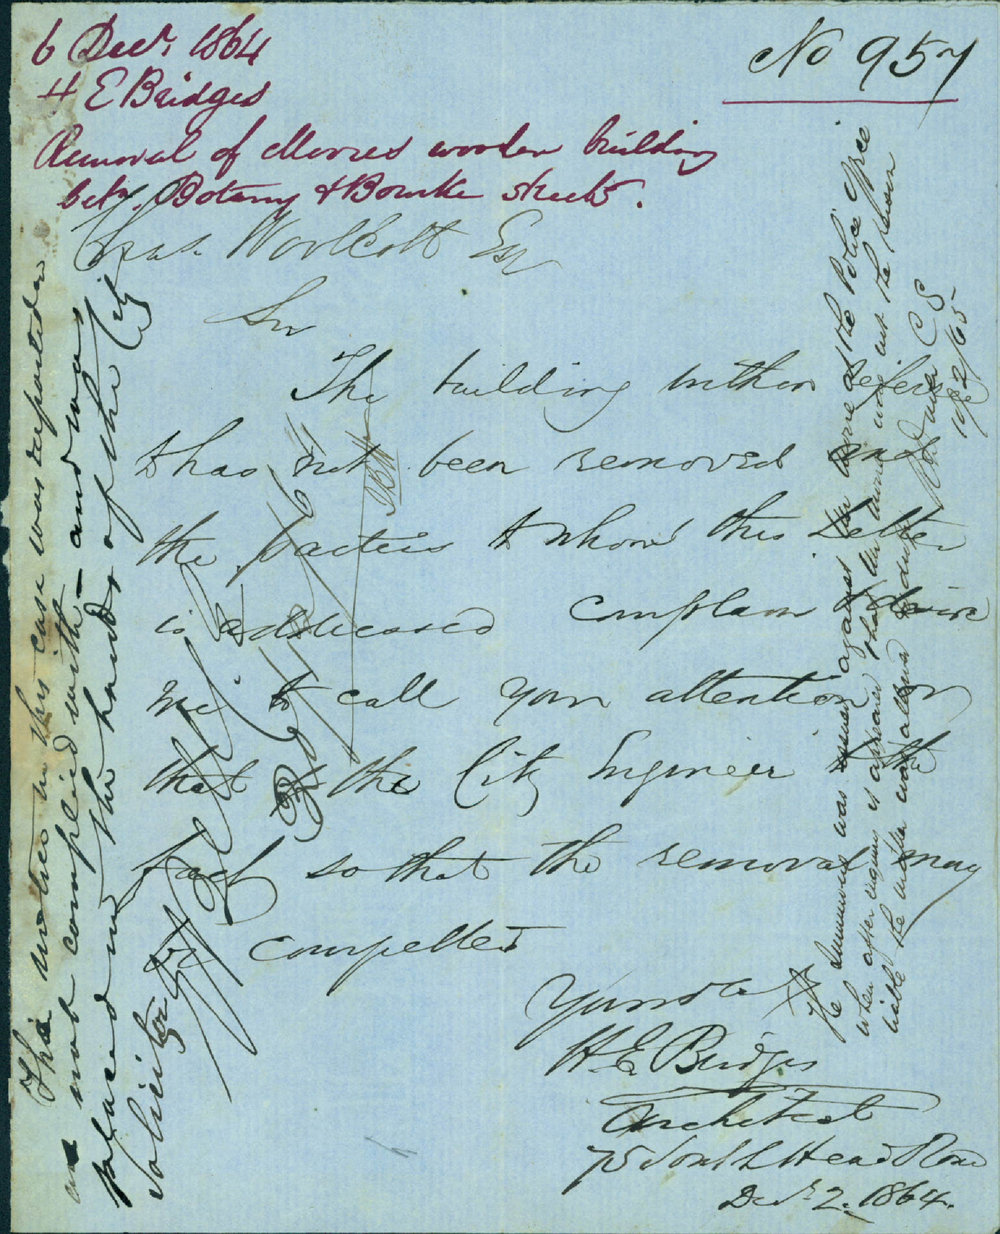 6 Decr. 1864
H E Bridges
Removal of Morris wooden building
betn. Botany & Bourke streets.
No 957
Chas. Woolcott Esq
Sir
The building within referd
to has not been removed and
the parties to whom this Letter
is addressed complain & desire
me to call your attention or
that of the City Engineer to the
fact so that the removal may
be compelled
Yours &c
H. E. Bridges
Architect
75 South Head Road
Decr 2. 1864.
This notice in this case was reported
as not complied with - and was
placed in the hands of the City
Solicitor
The summons was issued against the same at the Police Office
when after inquiry it appeared that the was not the person
liable the matter was allowed to drop
C S
/2/65